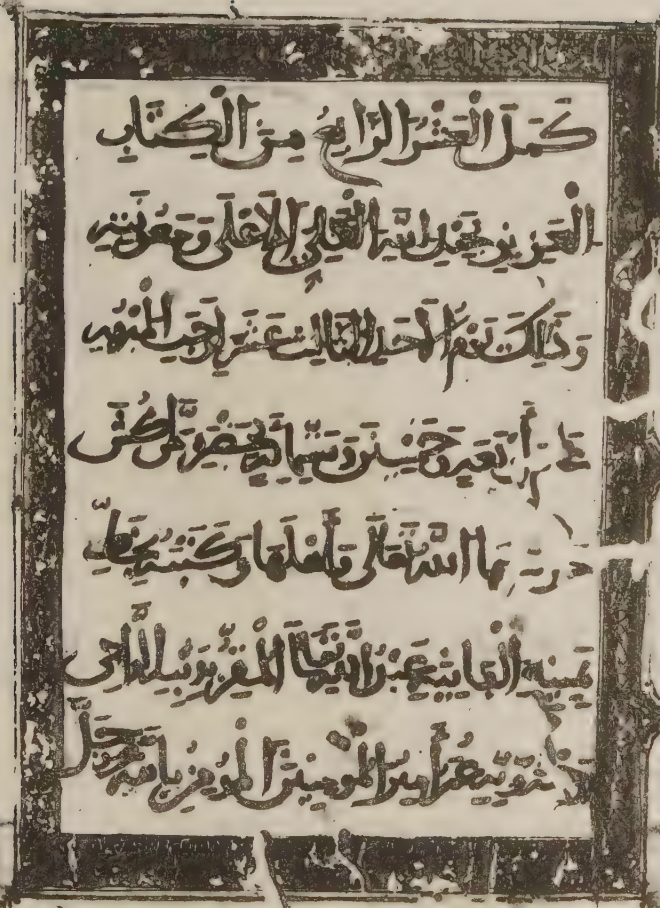 كَمَلَ الْعَشْرُ الرَّابِعُ مِنَ الْكِتَابِ
الْعَزِيزِ بِحَمْدِ اللهِ الْعَلِيِّ الْأَعْلَى وَمَعُونَتِهِ
وَذَلِكَ يَوْمَ الْأَحَدِ الثَّالِثَ عَشَرَ لِرَجَبِ
عَامَ أَرْبَعَةٍ وَخَمْسِينَ وَسِتِّمِائَةٍ بِحَضْرَةِ مَرَّاكُشَ
حرسها اللهُ تَعَالَى وَأَهْلَهَا وَكَتَبَهُ بِخَطِّ
يَمِينِهِ الْفَانِيَةِ عَبْدُ اللهِ تَعَالَى الْمُقِرُّ الرَّاجِي
عُمَرُ أَمِيرُ الْمُؤْمِنِينَ الْمُؤْمِنُ بِاللهِ عَزَّ وَجَلَّ